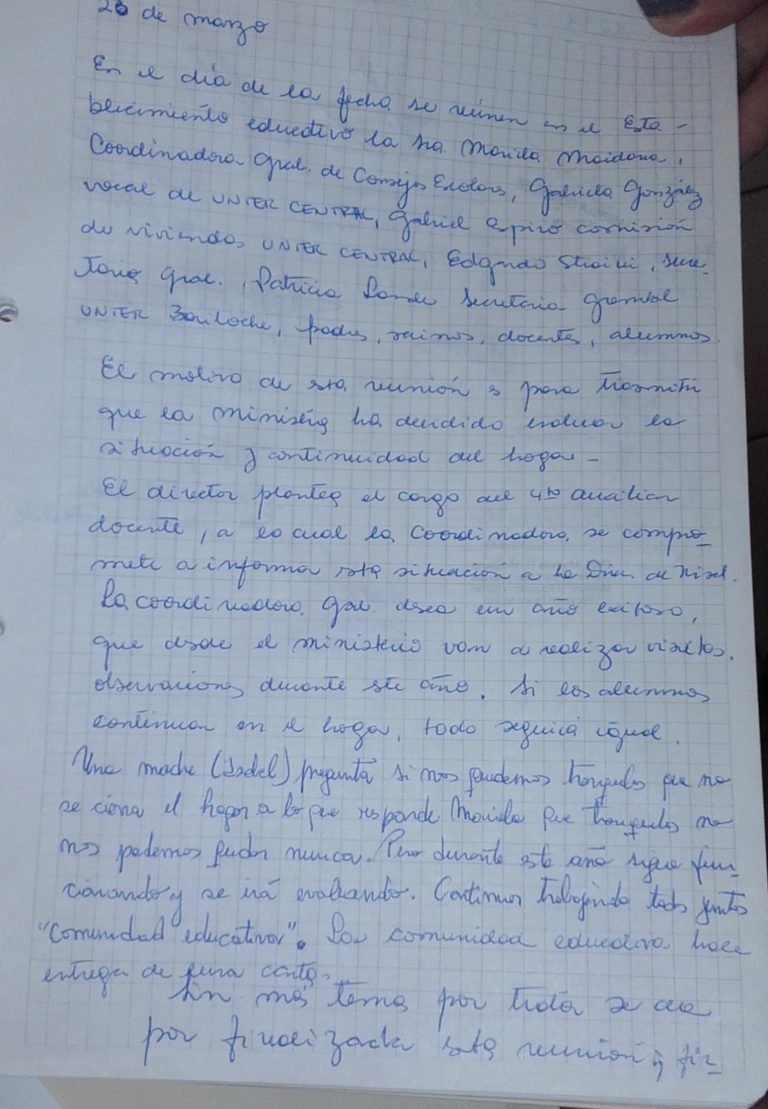 26 de marzo
En el día de la fecha se reunen en el Esta-
blecimiento educativo la Sra. Mariela Maidana,
Coordinadora Gral. de Consejos Escolares, Gabriela González
vocal de UNTER CENTRAL, Gabriel comisión
de viviendas UNTER CENTRAL, Edgardo secre-
taria Gral., Patricia Secretaria gremial
UNTER Bariloche, padres, vecinos, docentes, alumnos.
El motivo de esta reunión es para trasmitir
que la ministra ha decidido evaluar la
situación y continuidad del hogar-
El director plantea el cargo del 4to auxiliar
docente, a lo cual la Coordinadora se compro-
mete a informar esta situación a la Direc. de Nivel.
La coordinadora Gral. desea un año exitoso,
que desde el ministerio van a realizar visitas.
observaciones durante este año. Si los alumnos
continuan en el hogar, todo seguirá igual.
Una madre (Isabel) pregunta si nos quedemos tranquilos que no
se cierra el hogar a lo que responde Mariela que tranquilos no
nos podemos quedar nunca. Pero durante este año sigue fun-
cionando y se irá evaluando. Continuar trabajando todos juntos
"Comunidad educativa". La comunidad educativa hace
entrega de una carta.
Sin más tema por tratar se da
por finalizada esta reunión, fir-